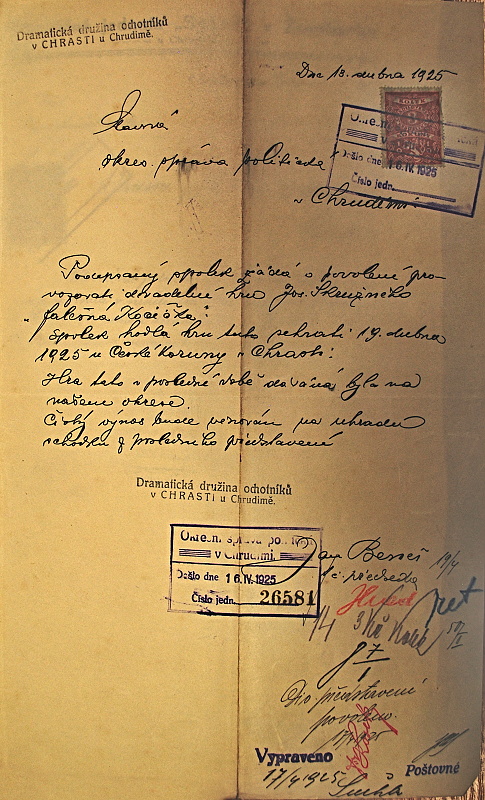 Dramatická družina ochotníků
v CHRASTI u Chrudimě.
Dne 13. dubna 1925
Slavná
okres. správa politická
v Chrudimi.
Došlo dne 16.IV.1925
Číslo jedn.
Podepsaný spolek žádá o povolení pro-
vozovati divadelní hru Jos. Skružného
„Falešná Kočička".
Spolek hodlá hru tuto sehráti 19. dubna
1925 u České Koruny v Chrasti.
Hra tato v poslední době dávána byla na
našem okrese.
Čistý výnos bude věnován na úhradu
schodku z posledního představení
Dramatická družina ochotníků
v CHRASTI u Chrudimě.
Okresní správa politická
v Chrudimi.
Došlo dne 16.IV.1925
Číslo jedn. 26581
Jan Beneš
t. č. předseda
3 Kč
představení
povoleno.
Vypraveno
17/4 1925
Poštovné